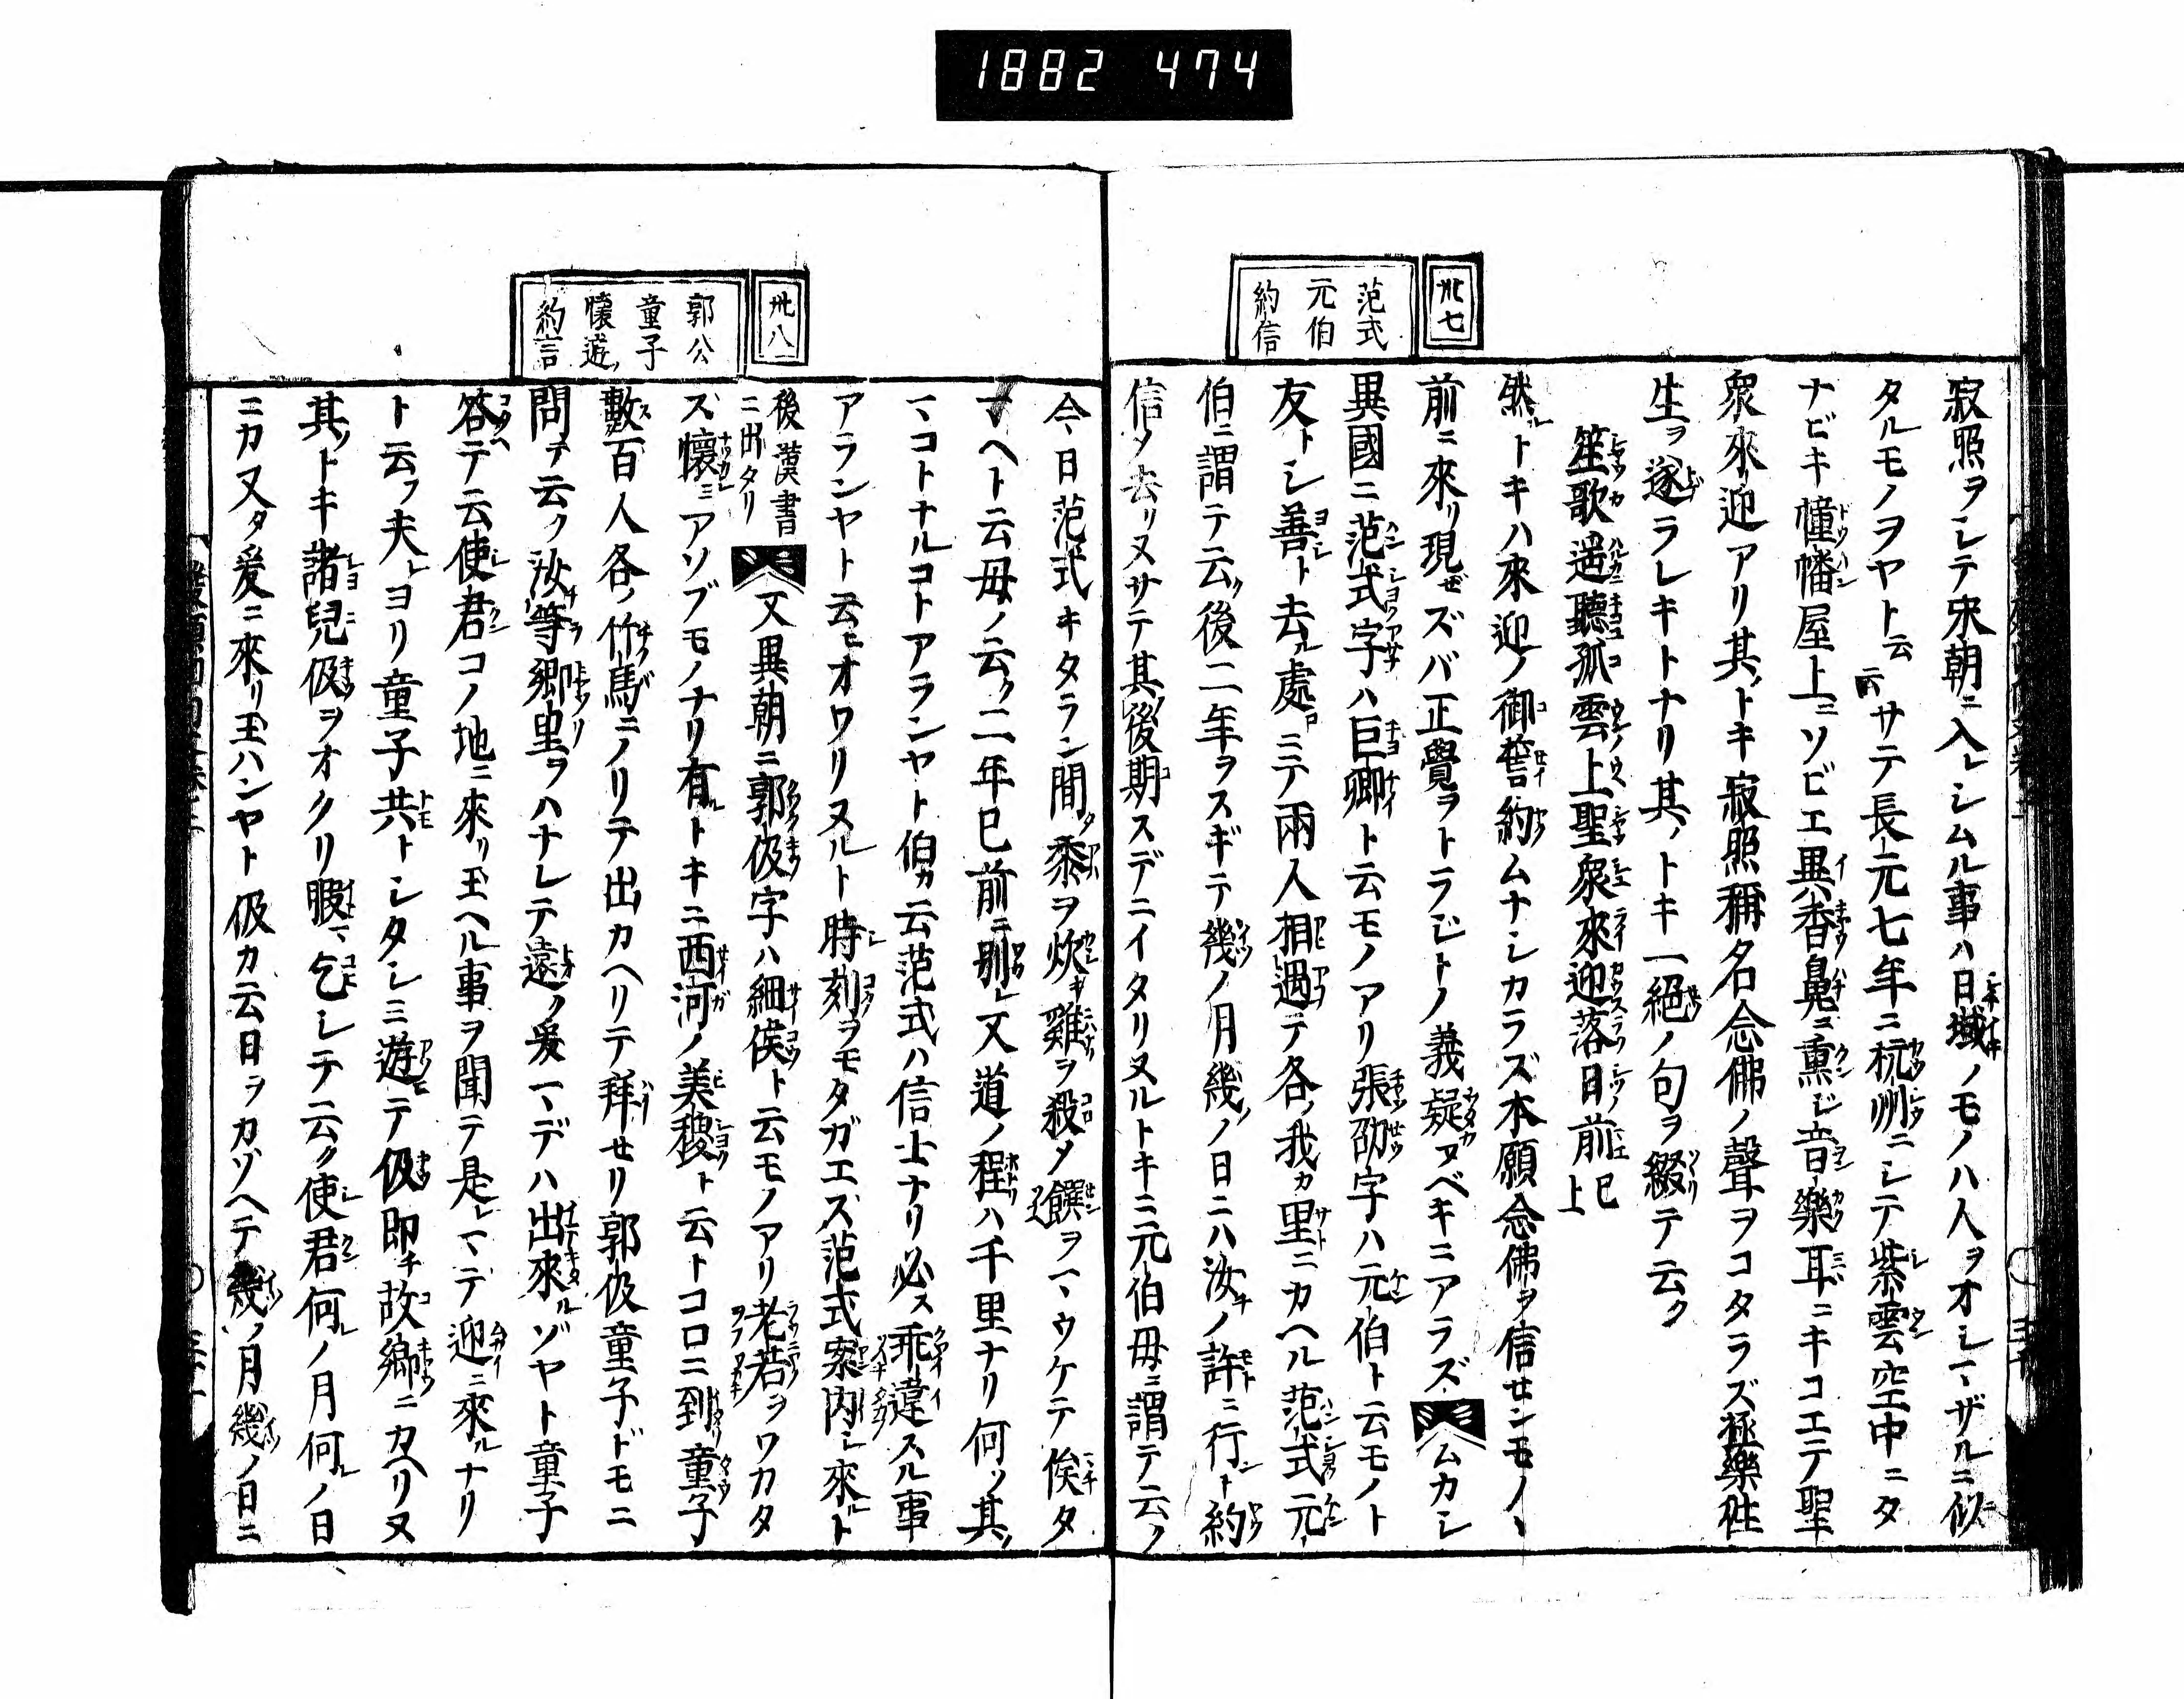 1882 474
卅七
范式
元伯
約信
寂照ヲシテ宋朝ニ入レシムル事ハ日域ノモノハ人ヲオシマザルニ似
タルモノヲヤト云云サテ長元七年ニ杭州ニシテ紫雲空中ニタ
ナビキ幢幡屋上ニソビエ異香鼻ニ熏ジ音樂耳ニキコエテ聖
衆來迎アリ其ノトキ寂照稱名念佛ノ聲ヲコタラズ極樂往
生ヲ遂ラレキトナリ其ノトキ一絕ノ句ヲ綴テ云ク
笙歌遥聽孤雲上聖衆來迎落日前已上
然ルトキハ來迎ノ御誓約ムナシカラズ本願念佛ヲ信センモノヽ
前ニ來リ現ゼズバ正覺ヲトラジトノ義疑フベキニアラズムカシ
異國ニ范式字ハ巨卿ト云モノアリ張劭字ハ元伯ト云モノト
友トシ善ト去ル處ロニテ兩人相遇テ各ノ我カ里ニカヘル范式元
伯ニ謂テ云ク後二年ヲスギテ幾ノ月幾ノ日ニハ汝ノ許ニ行ント約
信メ去リヌサテ其ノ後期スデニイタリヌルトキニ元伯母ニ謂テ云ク
卅八
郭公
童子
懷遊
約言
今日范式キタラン間タ黍ヲ炊キ雞ヲ殺メ饌ヲマウケテ俟タ
マヘト云母ノ云ク二年已前ニ別レ又道ノ程ハ千里ナリ何ソ其ノ
マコトナルコトアランヤト伯カ云范式ハ信士ナリ必ス乖違スル事
アランヤト云ヒオワリヌルト時刻ヲモタガエズ范式案内シ來ルト
後漢書ニ出タリ又異朝ニ郭伋字ハ細侯ト云モノアリ老若ヲワカタ
ズ懷ミアソブモノナリ有ルトキニ西河ノ美稷ト云トコロニ到リ童子
數百人各ノ竹馬ニノリテ出カヘリテ拜セリ郭伋童子ドモニ
問テ云ク汝等郷里ヲハナレテ遠ク爰マデハ出來ルゾヤト童子
答テ云使君コノ地ニ來リ玉ヘル事ヲ聞テ是レマデ迎ニ來ルナリ
ト云フ夫レヨリ童子共トシタシミ遊テ伋即チ故郷ニカヘリヌ
其ノトキ諸兒伋ヲオクリ暇マ乞シテ云ク使君何ルノ月何ルノ日
ニカ又タ爰ニ來リ玉ハンヤト伋カ云日ヲカゾヘテ幾ノ月幾ノ日ニ